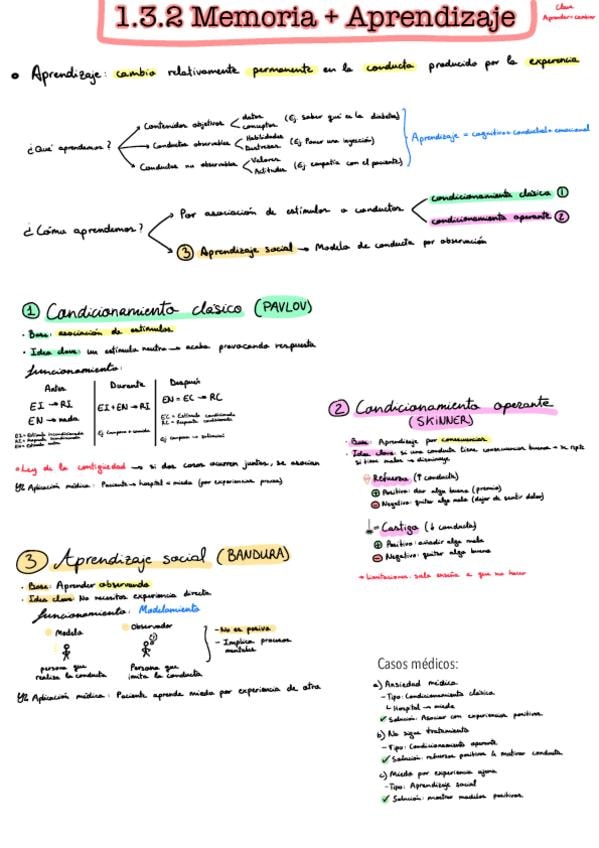 1.3.2 Memoria + Aprendizaje
Clave
Aprender = cambiar
Aprendizaje: cambio relativamente permanente en la conducta producido por la experencia
¿Qué aprendemos?
Contenidos objetivos
datos
conceptos
(Ej. Saber qué es la diabetes)
Conductas observables
Habilidades
Destrezas
(Ej Poner una inyección)
Conductas no observables
Valores
Actitudes
(Ej empatía con el paciente)
Aprendizaje = cognitivo + conductual + emocional
¿Cómo aprendemos?
Por asociación de estímulos o conductas
condicionamiento clásico ①
condicionamiento operante ②
③ Aprendizaje social → Modelo de conducta por observación
① Condicionamiento clásico (PAVLOV)
· Base: asociación de estímulos
· Idea clave: un estímulo neutro → acaba provocando respuesta
funcionamiento:
Antes
EI → RI
EN → nada
EI = Estímulo incondicionado
RI = Respuesta incondicionada
EN = Estímulo neutro
Durante
EI + EN → RI
Ej campana + comida
Después
EN = EC → RC
EC = Estímulo condicionado
RC = Respuesta condicionada
Ej campana → salivación
Ley de la contigüedad → si dos cosas ocurren juntas, se asocian
Aplicación médica: Paciente → hospital = miedo (por experiencias previas)
② Condicionamiento operante
(SKINNER)
· Base: Aprendizaje por consecuencias
· Idea clave: si una conducta tiene consecuencias buenas → se repite
si tiene malas → disminuye
Refuerzo (↑ conducta)
⊕ Positivo: dar algo bueno (premio)
⊖ Negativo: quitar algo malo (dejar de sentir dolor)
Castigo (↓ conducta)
⊕ Positivo: añadir algo malo
⊖ Negativo: quitar algo bueno
→ Limitaciones: solo enseña a que no hacer
③ Aprendizaje social (BANDURA)
· Base: Aprender observando
· Idea clave: No necesitas experiencia directa
funcionamiento: Modelamiento
Modelo
persona que
realiza la conducta
Observador
Persona que
imita la conducta
- No es pasivo
- Implica procesos
mentales
Aplicación médica: Paciente aprende miedo por experiencia de otro
Casos médicos:
a) Ansiedad médica
- Tipo: Condicionamiento clásico
↳ Hospital → miedo
✓ Solución: Asociar con experiencias positivas
b) No sigue tratamiento
- Tipo: Condicionamiento operante
✓ Solución: refuerzo positivo & motivar conducta
c) Miedo por experiencia ajena
- Tipo: Aprendizaje social
✓ Solución: mostrar modelos positivos